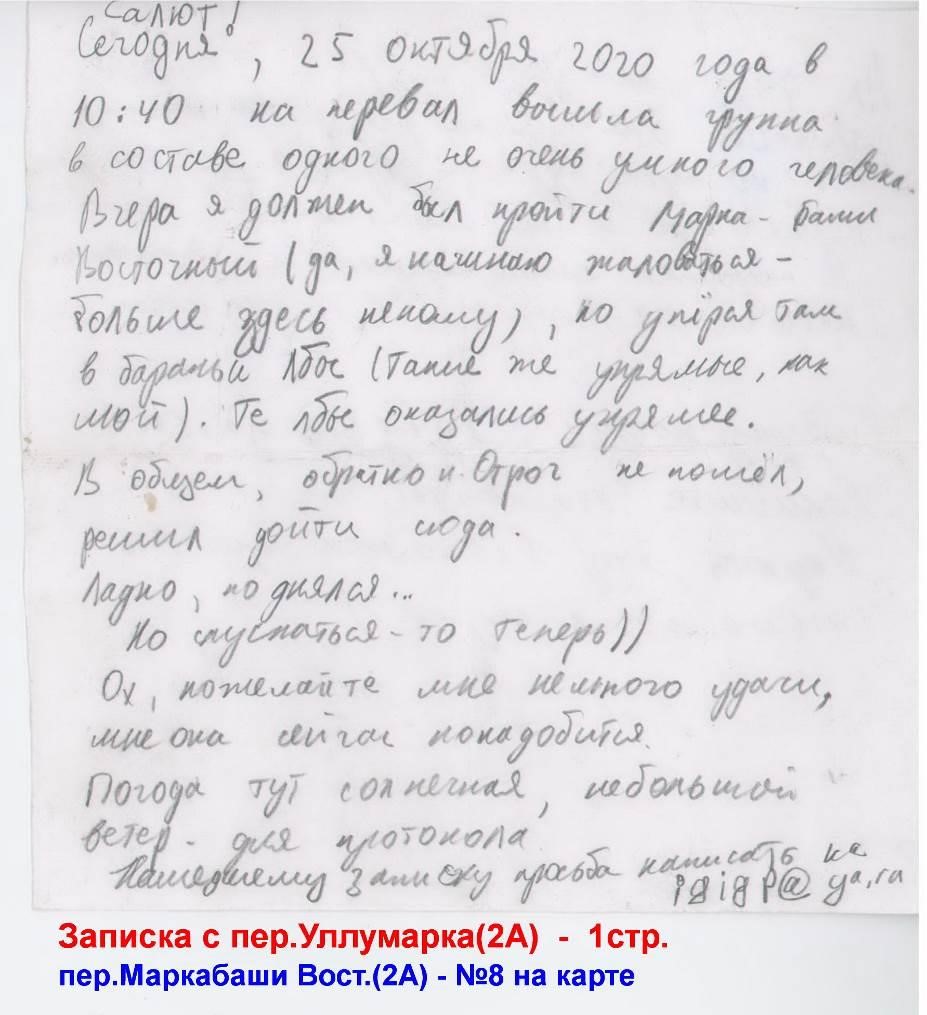 Салют!
Сегодня, 25 октября 2020 года в
10:40 на перевал вошла группа
в составе одного не очень умного человека.
Вчера я должен был пройти Марка-баши
Восточный (да, я начинаю жаловаться -
больше здесь некому), но упёрся там
в бараньи лбы (такие же упрямые, как
мой). Те лбы оказались упрямее.
В общем, обратно и Отрог не пошёл,
решил дойти сюда.
Ладно, поднялся...
Но спускаться-то теперь))
Ох, пожелайте мне немного удачи,
мне она сейчас понадобится.
Погода тут солнечная, небольшой
ветер - для протокола
Нашедшему записку просьба написать на
igigp@ya.ru
Записка с пер.Уллумарка(2А) - 1стр.
пер.Маркабаши Вост.(2А) - №8 на карте